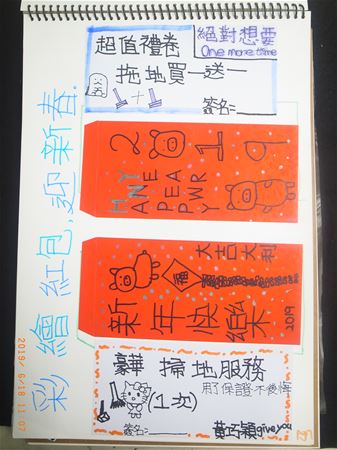 彩繪紅包,迎新春.
超值禮卷
絕對想要
One more time
拖地買一送一
簽名:
2 1 9
HAPPY
NEW
YEAR
大吉大利
福
新年快樂
2019
豪華 掃地服務
用了保證不後悔
(1次)
簽名:
黃巧穎 give you
2019/6/18 11:07